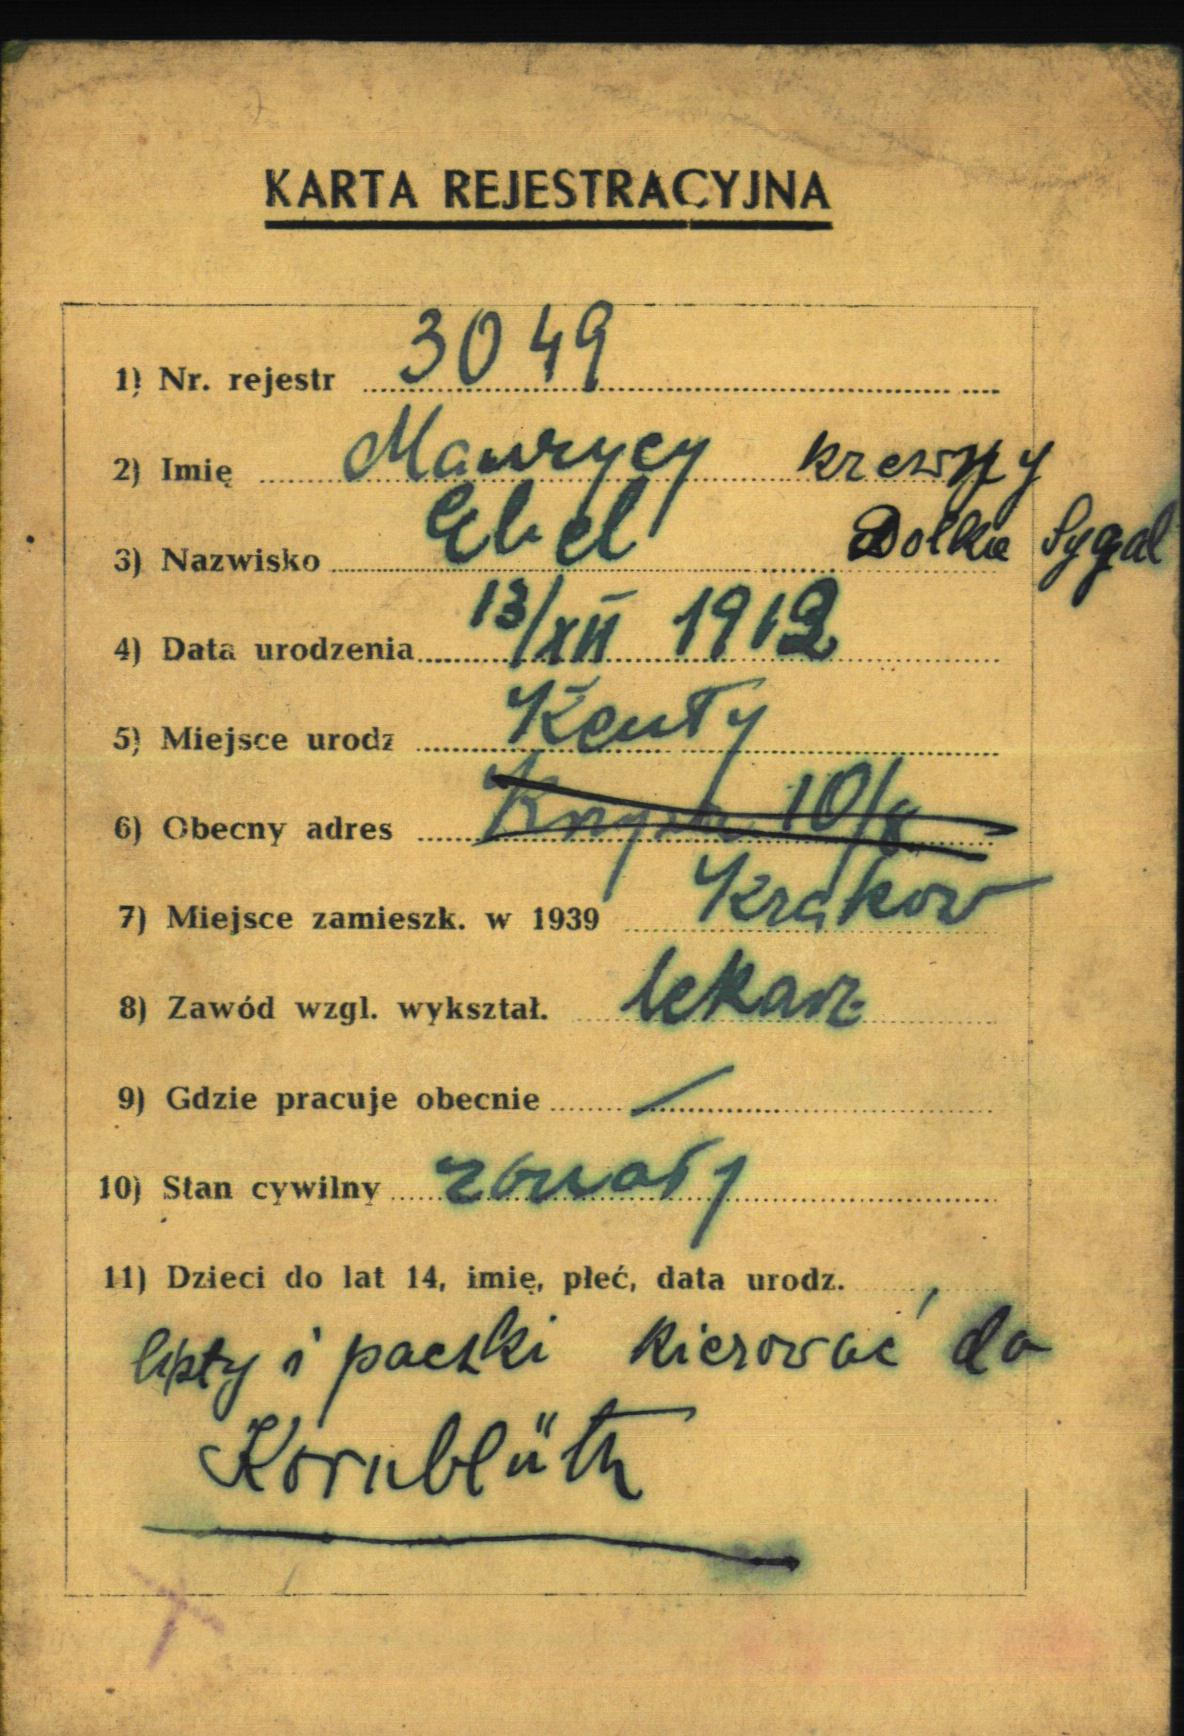 KARTA REJESTRACYJNA
1) Nr. rejestr 3049
2) Imię Maurycy krewny
3) Nazwisko Ebel Dolka Sygal
4) Data urodzenia 13/XII 1912
5) Miejsce urodz Kenty
6) Obecny adres 10/
7) Miejsce zamieszk. w 1939 Krakow
8) Zawód wzgl. wykształ. lekarz
9) Gdzie pracuje obecnie —
10) Stan cywilny żonaty
11) Dzieci do lat 14, imię, płeć, data urodz.
listy i paczki kierować do
Kornblüth